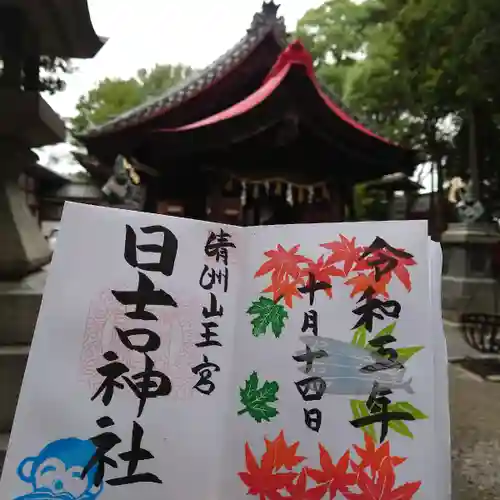 令和五年
十月十四日
清洲山王宮
日吉神社